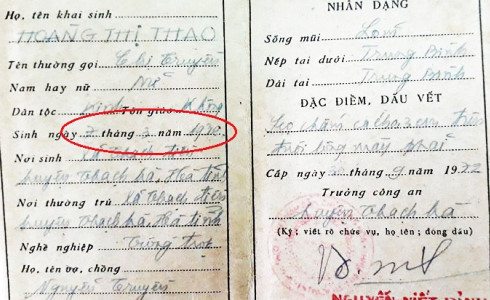 Họ, tên khai sinh
HOÀNG THỊ THẢO
Tên thường gọi Chị Truyền
Nam hay nữ Nữ
Dân tộc Kinh Tôn giáo Không
Sinh ngày tháng năm 1970
Nơi sinh xã Thạch
huyện Thạch hà, Hà Tĩnh
Nơi thường trú xã Thạch
huyện Thạch hà, Hà Tĩnh
Nghề nghiệp Trồng trọt
Họ, tên vợ, chồng
Nguyễn Truyền
NHÂN DẠNG
Sống mũi Lõm
Nếp tai dưới Trung Bình
Dái tai Trung Bình
ĐẶC DIỂM, DẤU VẾT
Sẹo chấm cách 3cm trên
lông mày phải
Cấp ngày tháng 9 năm 19
Trưởng công an
huyện Thạch hà
(Ký; viết rõ chức vụ, họ tên; đóng dấu)
NGUYỄN VIẾT